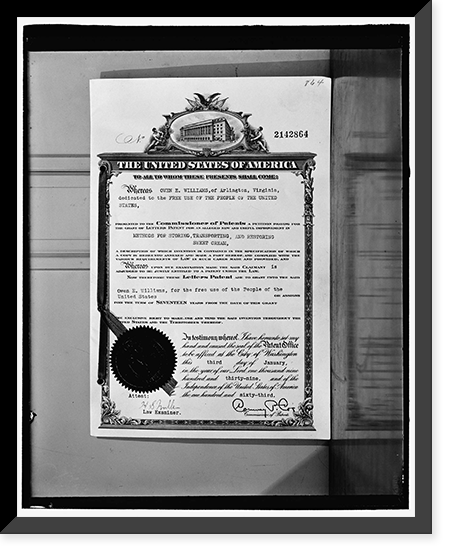 764
No
2142864
THE UNITED STATES OF AMERICA
TO ALL TO WHOM THESE PRESENTS SHALL COME:
Whereas OWEN E. WILLIAMS, of Arlington, Virginia,
dedicated to the FREE USE OF THE PEOPLE OF THE UNITED
STATES,
PRESENTED TO THE Commissioner of Patents A PETITION PRAYING FOR
THE GRANT OF LETTERS PATENT FOR AN ALLEGED NEW AND USEFUL IMPROVEMENT IN
METHODS FOR STORING, TRANSPORTING, AND RESTORING
SWEET CREAM,
A DESCRIPTION OF WHICH INVENTION IS CONTAINED IN THE SPECIFICATION OF WHICH
A COPY IS HEREUNTO ANNEXED AND MADE A PART HEREOF, AND COMPLIED WITH THE
VARIOUS REQUIREMENTS OF LAW IN SUCH CASES MADE AND PROVIDED, AND
Whereas UPON DUE EXAMINATION MADE THE SAID CLAIMANT IS
ADJUDGED TO BE JUSTLY ENTITLED TO A PATENT UNDER THE LAW.
NOW THEREFORE THESE Letters Patent ARE TO GRANT UNTO THE SAID
Owen E. Williams, for the free use of the People of the
United States
FOR THE TERM OF SEVENTEEN YEARS FROM THE DATE OF THIS GRANT
In testimony whereof, I have hereunto set my
hand and caused the seal of the Patent Office
to be affixed at the City of Washington
this third day of January,
in the year of our Lord one thousand nine
hundred and thirty-nine, and of the
Independence of the United States of America
the one hundred and sixty-third.
Attest:
Law Examiner.